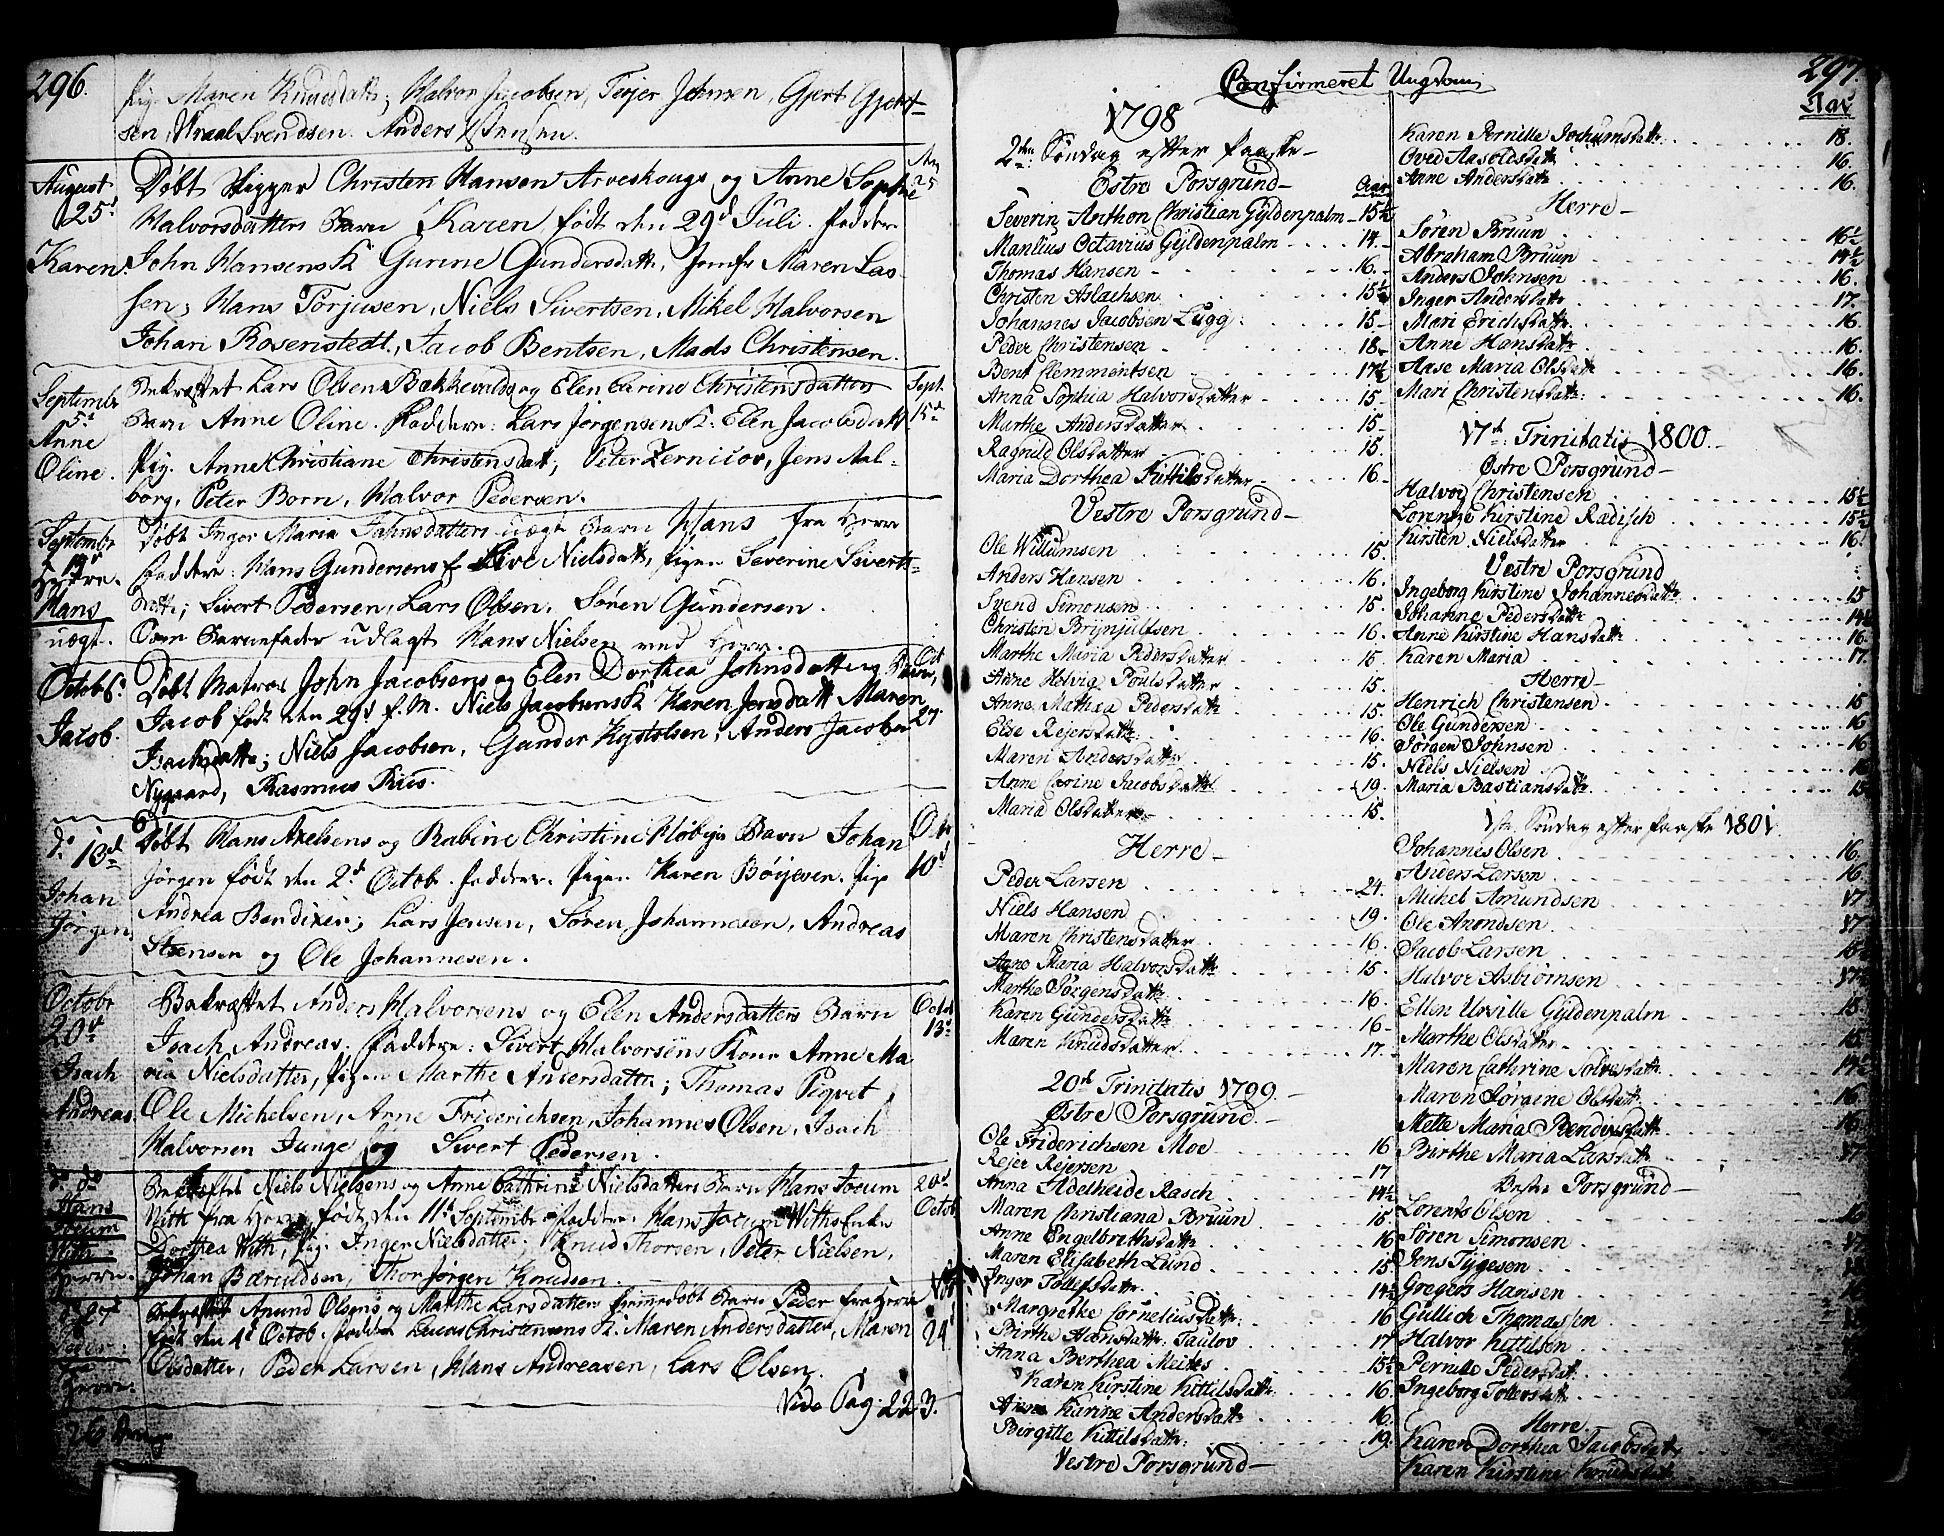 296.
Pig. Maren Knudsdatt; Halvor Jacobsen, Terjer Jensen, Gjert Gjert-
sen, Svendsen. Anders Jensen.
August 25d Karen
Døbt Skipper Christen Hansen Arveskougs og Anne Sophie
Halvorsdatters Barn Karen født den 29d Juli. Faddere
John Hansens K. Gurine Gundersdatt, Jomfr Maren Las-
sen; Hans Torjusen, Niels Sivertsen, Mikel Halvorsen
Johan Rosenstedt, Jacob Bentsen, Mads Christensen.
Septembr 5d Anne Oline.
Bekræftet Lars Olsen Bækkevolds og Elen Carine Christensdatters Sept. 15d
Barn Anne Oline. Faddere: Lars Jørgensens K: Elen Jacobsdatt
Pig. Anne Christiane Christensdatt, Peter Zernicov, Jens Aal-
borg, Peter Born, Halvor Pedersen.
Septembr Herre. Hans uægt.
Døbt Inger Maria Jahnsdatters uægt Barn Hans fra Herre
Faddere: Hans Gundersens K Live Nielsdatt, Pigen Severine Siverts-
datt; Sivert Pedersen, Lars Olsen, Søren Gundersen.
Som Barnefader udlagt Hans Nielsen ved Herre.
Octobr Jacob.
Døbt Matros John Jacobsens og Elen Dorthea Johnsdatters Barn,
Jacob født den 29d f. M. Niels Jacobsens K Karen Jensdatt Maren
Isachsdatt; Niels Jacobsen, Gunder Kystolsen, Anders Jacobsen
Nygaard, Rasmus Riis.
d. 13d Johan Jørgen
Døbt Hans Axelsens og Rabine Christine Høbyes Barn Johan Octbr
Jørgen født den 2d Octob. Faddere. Pigen Karen Böyesen. Pig 10d
Andrea Bendixen; Lars Jensen, Søren Johannesen, Andreas
Steensen og Ole Johannesen.
Octobr 20d Isach Andreas
Bekræftet Anders Halvorsens og Elen Andersdatters Barn Octob 13d
Isach Andreas. Faddere: Sivert Halvorsens Kone Anne Ma-
ria Nielsdatter, Pigen Marthe Andersdatt; Thomas Pigvet
Ole Michelsen, Arne Friderichsen, Johannes Olsen, Isach
Halvorsen Junge og Sivert Pedersen.
do do Hans Jocum With Herre.
Bekræftet Niels Nielsens og Anne Cathrine Nielsdatters Barn Hans Jocum 20d
With fra Herre, født den 11d Septembr Faddere. Hans Jocum Withs Enke Octob
Dorthea With, Pig. Inger Nielsdatter; Knud Thorsen, Peter Nielsen,
Johan Bærndsen, Thor Jørgen Knudsen.
27d Peder Herre.
Bekræftet Anund Olsens og Marthe Larsdatters hjemmedøbt Barn Peder fra Herre
født den 4d Octob. Fadder Lucas Christensens K: Maren Andersdatter, Maren 24
Olsdatter, Peder Larsen, Hans Andreasen, Lars Olsen.
Vide Pag. 223.
Confirmeret Ungdom 297.
1798
2den Søndag efter Paaske
Østre Porsgrund Aar
Severin Anthon Christian Gyldenpalm 15½
Manlius Octavius Gyldenpalm 14.
Thomas Hansen 16.
Christen Aslachsen 15½
Johannes Jacobsen Lugg 15
Peder Christensen 18
Bent Clemmentsen 17½
Anna Sophia Halvorsdatter 15
Marthe Andersdatter 15
Ragnild Olsdatter 15.
Maria Dorthea Kittilsdatter 16
Vestre Porsgrund
Ole Willumsen 15.
Anders Hansen 16.
Svend Simonsen 15.
Christen Brynjulfsen 16.
Marthe Maria Pedersdatter 15.
Anne Helvig Poulsdatter 15.
Anne Mathea Pedersdatt 15.
Else Rejersdatt 16.
Maren Andersdatter 15.
Anne Carine Jacobsdatt 19.
Maria Olsdatter 15.
Herre
Peder Larsen 24.
Niels Hansen 19.
Maren Christensdatter 16.
Anne Maria Halvorsdatt 15.
Marthe Jørgensdatt 16.
Karen Gundersdatt 16
Maren Knudsdatter 17
20de Trinitatis 1799.
Østre Porsgrund.
Ole Friderichsen Moe 16
Rejer Rejersen 17
Anna Adelheide Rasch 14½
Maren Christiana Bruun 15
Anne Engelbrethsdatt 16
Maren Elisabeth Lund 15
Inger Tollefsdatt 14½
Margrethe Corneliusdatt 16
Birthe Hansdatt. Taulov 17
Anna Berthea Meités 15½
Karen Kirstine Kittilsdatt 16.
Anne Karine Andersdatt 16.
Birgitte Kittilsdatt 19.
Vestre Porsgrund
Aar
Karen Pernille Jochumsdatt 18.
Oved Aasoldsdatt 16.
Anne Andersdatt 16.
Herre
Søren Bruun 16½
Abraham Bruun 14½
Anders Johnsen 16.
Inger Andersdatt 17.
Mari Erichsdatt 16.
Anne Hansdatt 16.
Aase Maria Olsdatt 16.
Mari Christensdatt 16.
17de Trinitatis 1800.
Østre Porsgrund
Halvor Christensen 15½
Lorentze Kirstine Radisch 15½
Kirsten Nielsdatter 16
Vestre Porsgrund
Ingeborg Kirstine Johannesdatt 15
Johanne Pedersdatt 14½
Anne Kirstine Hansdatt 16.
Karen Maria 17.
Herre
Henrich Christensen 15
Ole Gundersen 16
Jørgen Johnsen 16
Niels Nielsen 16
Maria Bastiansdatt 15
1ste Søndag efter Paaske 1801.
Johannes Olsen 16.
Anders Larsen 16
Michel Amundsen 17
Ole Anondsen 17
Jacob Larsen
Halvor Asbiørnsen 17½
Ellen Urville Gyldenpalm 15
Marthe Olsdatter 15
Maren Cathrine Solvesdatt 14½
Maren Jørgene Olsdatt 16
Mette Maria Bendersdatt 16
Birthe Maria Larsdatt 17
Vestre Porsgrund
Lorents Olsen
Søren Simonsen
Jens Tygesen
Gregers Hansen
Gullich Thomassen
Halvor Kittilsen
Pernille Pedersdat.
Ingeborg Tollefsdatt
Herre
Karen Dorthea Jacobsdat
Karen Kirstine Knudsdat